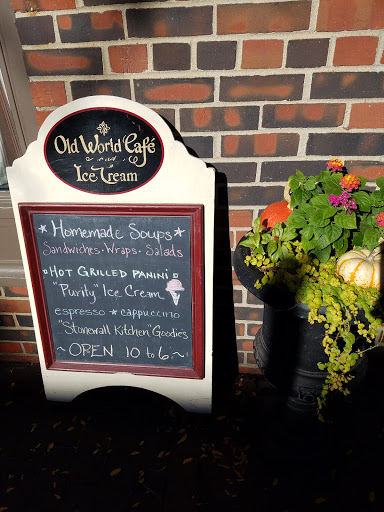 Old World Café
and
Ice Cream
★ Homemade Soups ★
Sandwiches • Wraps • Salads
Hot Grilled Panini
"Purity" Ice Cream
espresso ★ cappuccino
"Stonewall Kitchen" Goodies
~ OPEN 10 to 6 ~